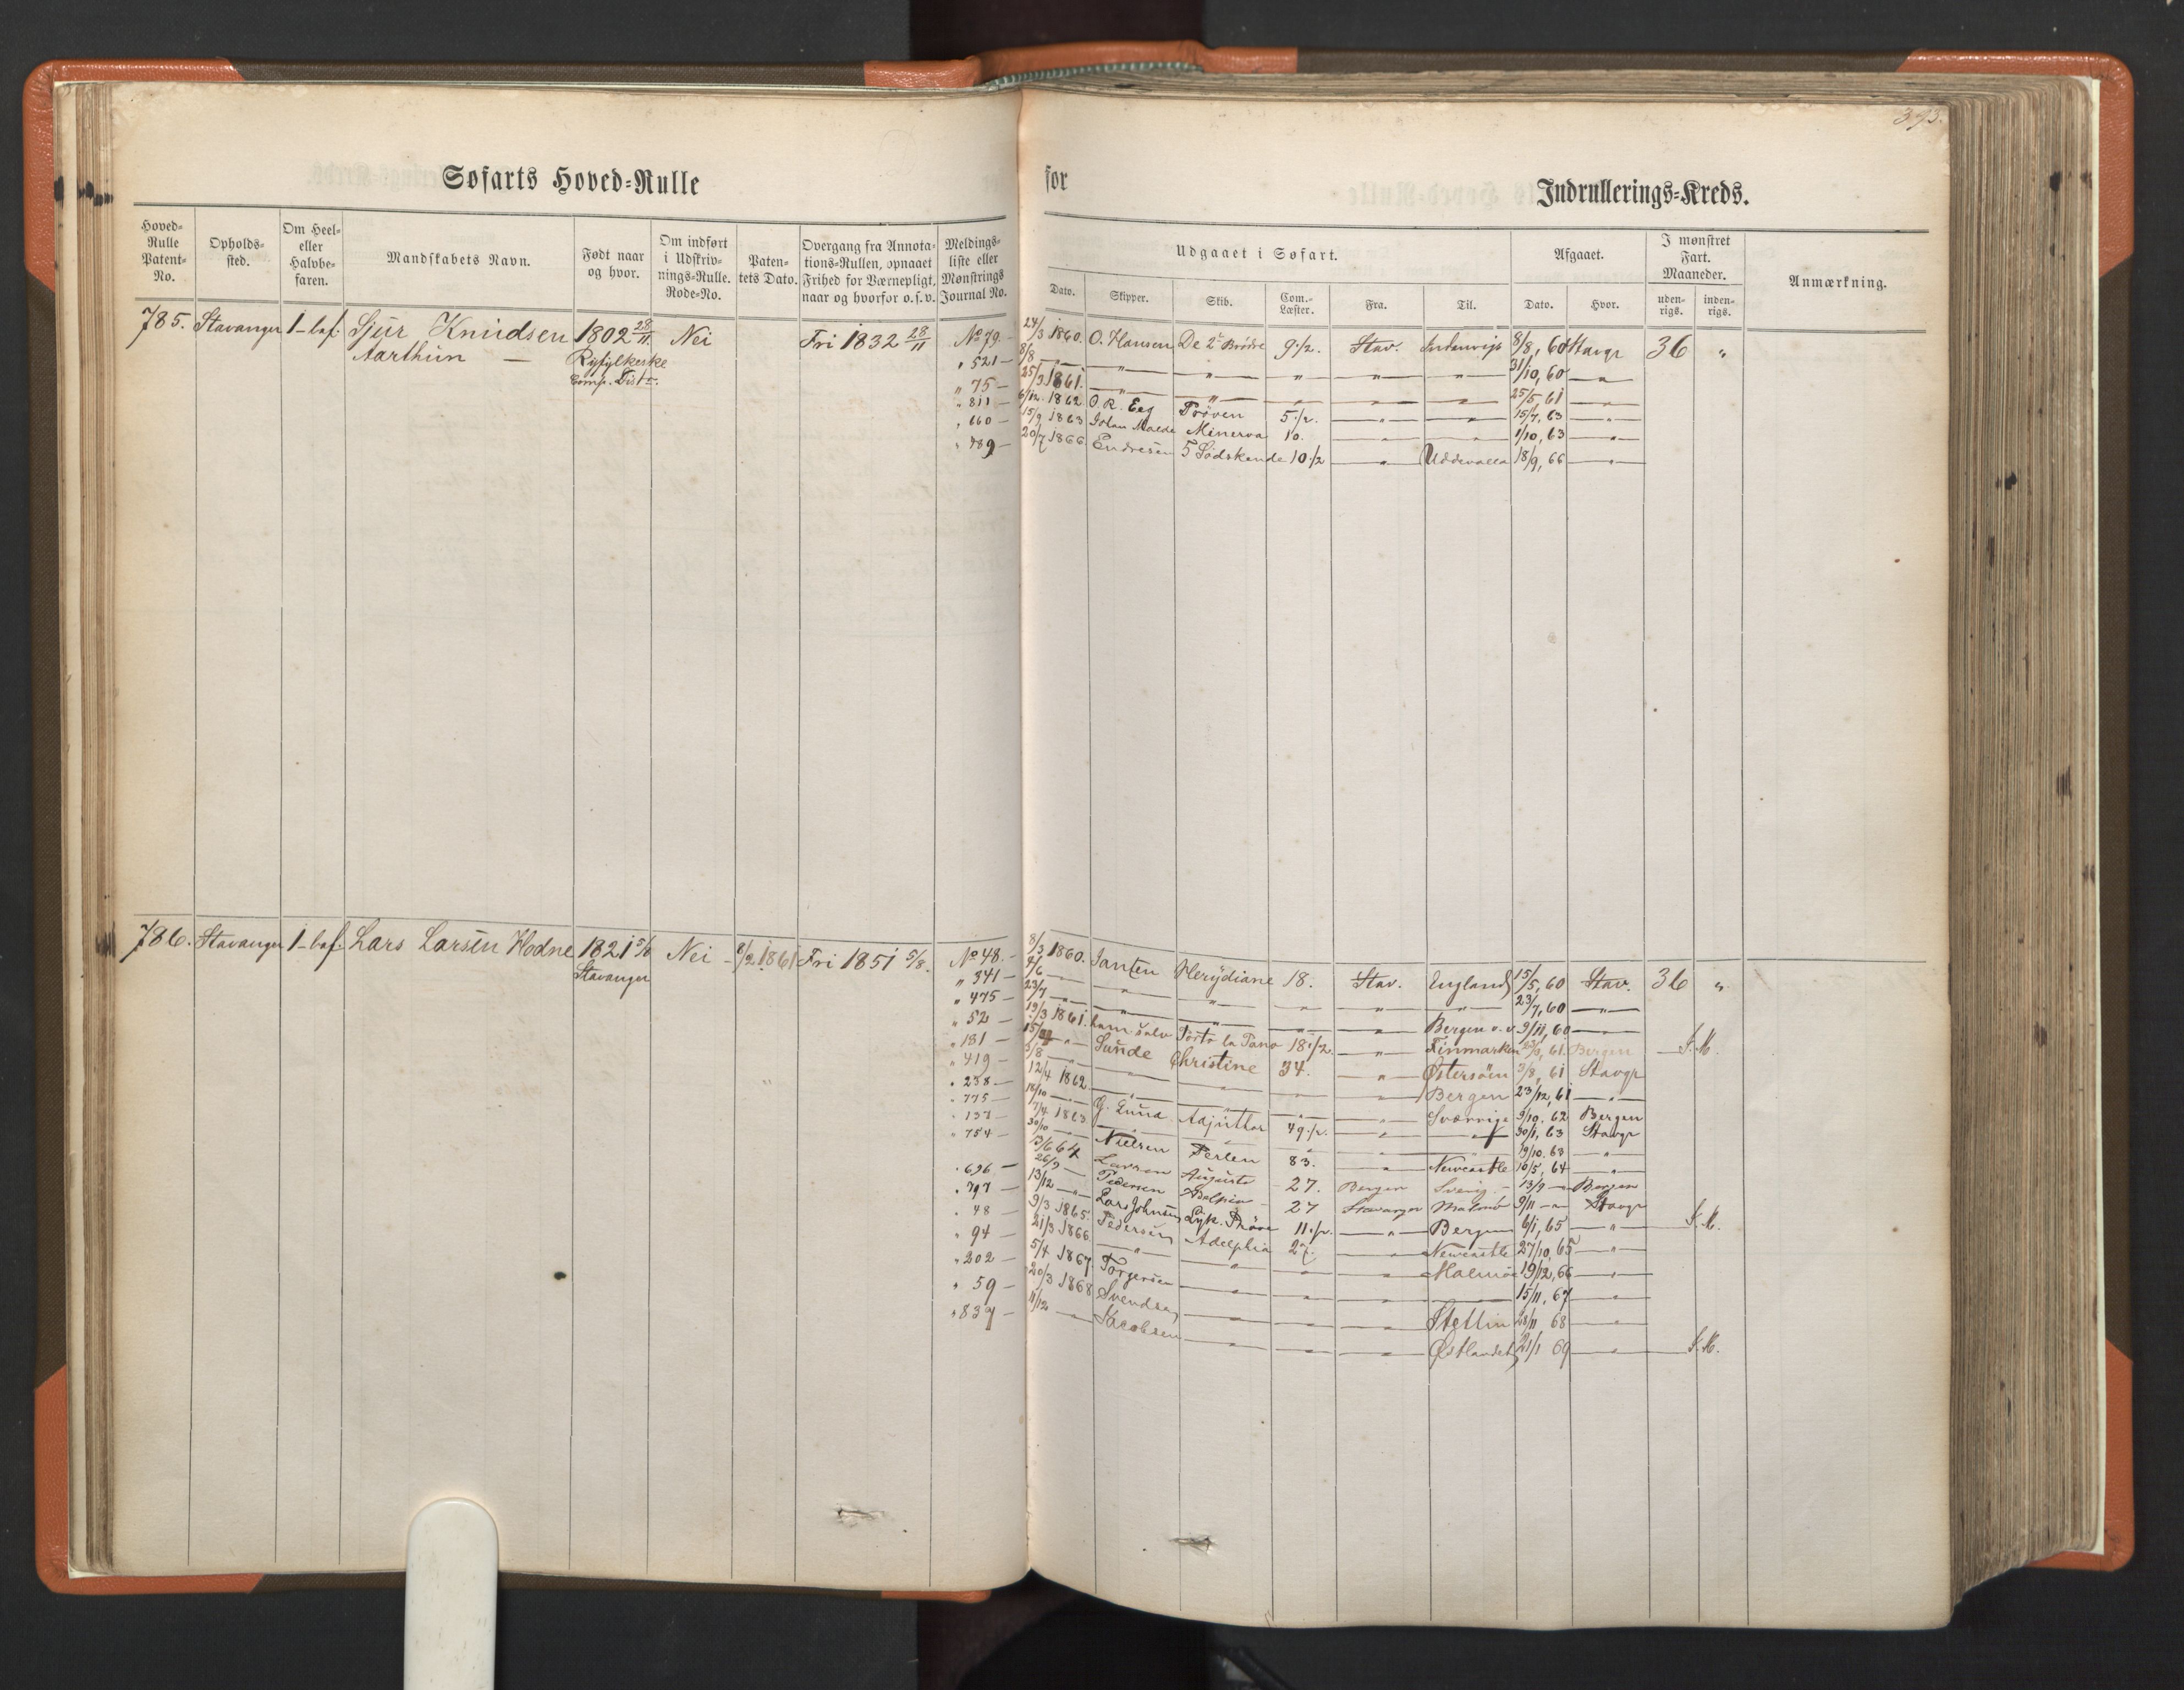 393.
Søfarts Hoved=Rulle for Indrullerings=Kreds.
Hoved=Rulle Patent=No. Opholds=sted. Om Heel= eller Halvbe=faren. Mandskabets Navn. Født naar og hvor. Om indført i Udskriv=nings=Rulle. Rode=No. Paten=tets Dato. Overgang fra Annota=tions=Rullen, opnaaet Frihed for Værnepligt, naar og hvorfor o.s.v. Meldings=liste eller Mønstrings Journal No. Udgaaet i Søfart. Afgaaet. I mønstret Fart. Maaneder. Anmærkning.
Dato. Skipper. Skib. Com.=Læster. Fra. Til. Dato. Hvor. uden=rigs. inden=rigs.
785. Stavanger 1-bef. Sjur Knudsen 1802 28/11 Nei Fri 1832 28/11 No 79.- 24/3 1860. O. Hansen De 2 Brødre 9.1/2. Stav. Indenrigs 8/8, 60 Stavgr 36 "
Aarthun - Ryfylkeske " 521- 8/8 -"- " " " " " 31/10, 60 "
Comp. Distr. " 75- 25/3 1861. " " " " " 25/5 61 "
" 811- 6/12. 1862 O. R. Eeg Prøven 5.1/2. " " 15/7, 63 "
" 660- 15/9 1863 Johan Malde Minerva 10. " " 1/10, 63 "
" 789- 20/7 1866 Endresen 5 Sødskende 10.1/2 " Uddevalla 18/9, 66 "
786. Stavanger 1-bef. Lars Larsen Hodne 1821 5/8 Nei - 8/2 1861 Fri 1851 5/8. No 48.- 8/3 1860. Jansen Merydiane 18. Stav. England 15/5, 60 Stav. 36 "
Stavanger " 341- 4/6 " " " " " 23/7, 60 "
" 475- 23/7 " " " " " Bergen o.v. 9/11, 60 "
" 52- 19/3 1861. 18 1/2 " Finmarken 61. Bergen S.M.
" 181- " Sunde Christine 34. " Østersøen 3/8, 61 Stavgr
" 419- 3/8 " " " " Bergen 23/12, 61 "
" 238- 12/4 1862. " " " " Sverrige 9/10. 62 Bergen
" 775- 18/10 G. Lund Adjuttor 49.1/2. " " 30/1, 63 Stavgr
" 137- 7/4 1863 " " " " " 19/10. 63 "
" 754- 30/10 Nielsen Perlen 83. " Newcastle 16/5, 64 "
13/6 64 Larsen Augusta 27. Bergen Sverig - 13/9 Bergen
" 696- 26/9 Pedersen Adelphia 27 Stavanger 9/11 Stavgr
" 797- 13/12 Lars Johnsen Lyk. Prøve 11.1/2. " Bergen 6/1, 65 " S.M.
" 48- 9/3 1865. Pedersen Adelphia 27. " Newcastle 27/10, 65 "
" 94- 21/3 1866. " " " " Malmøe 19/12, 66 "
" 202- 5/4 1867. Torgersen " " " " 15/11, 67 "
" 59- 20/3 1868 Svendsen " " " Stettin 28/11 68 "
" 839- 11/12 Jacobsen " " " Østlandet 21/1 69 " S.M.